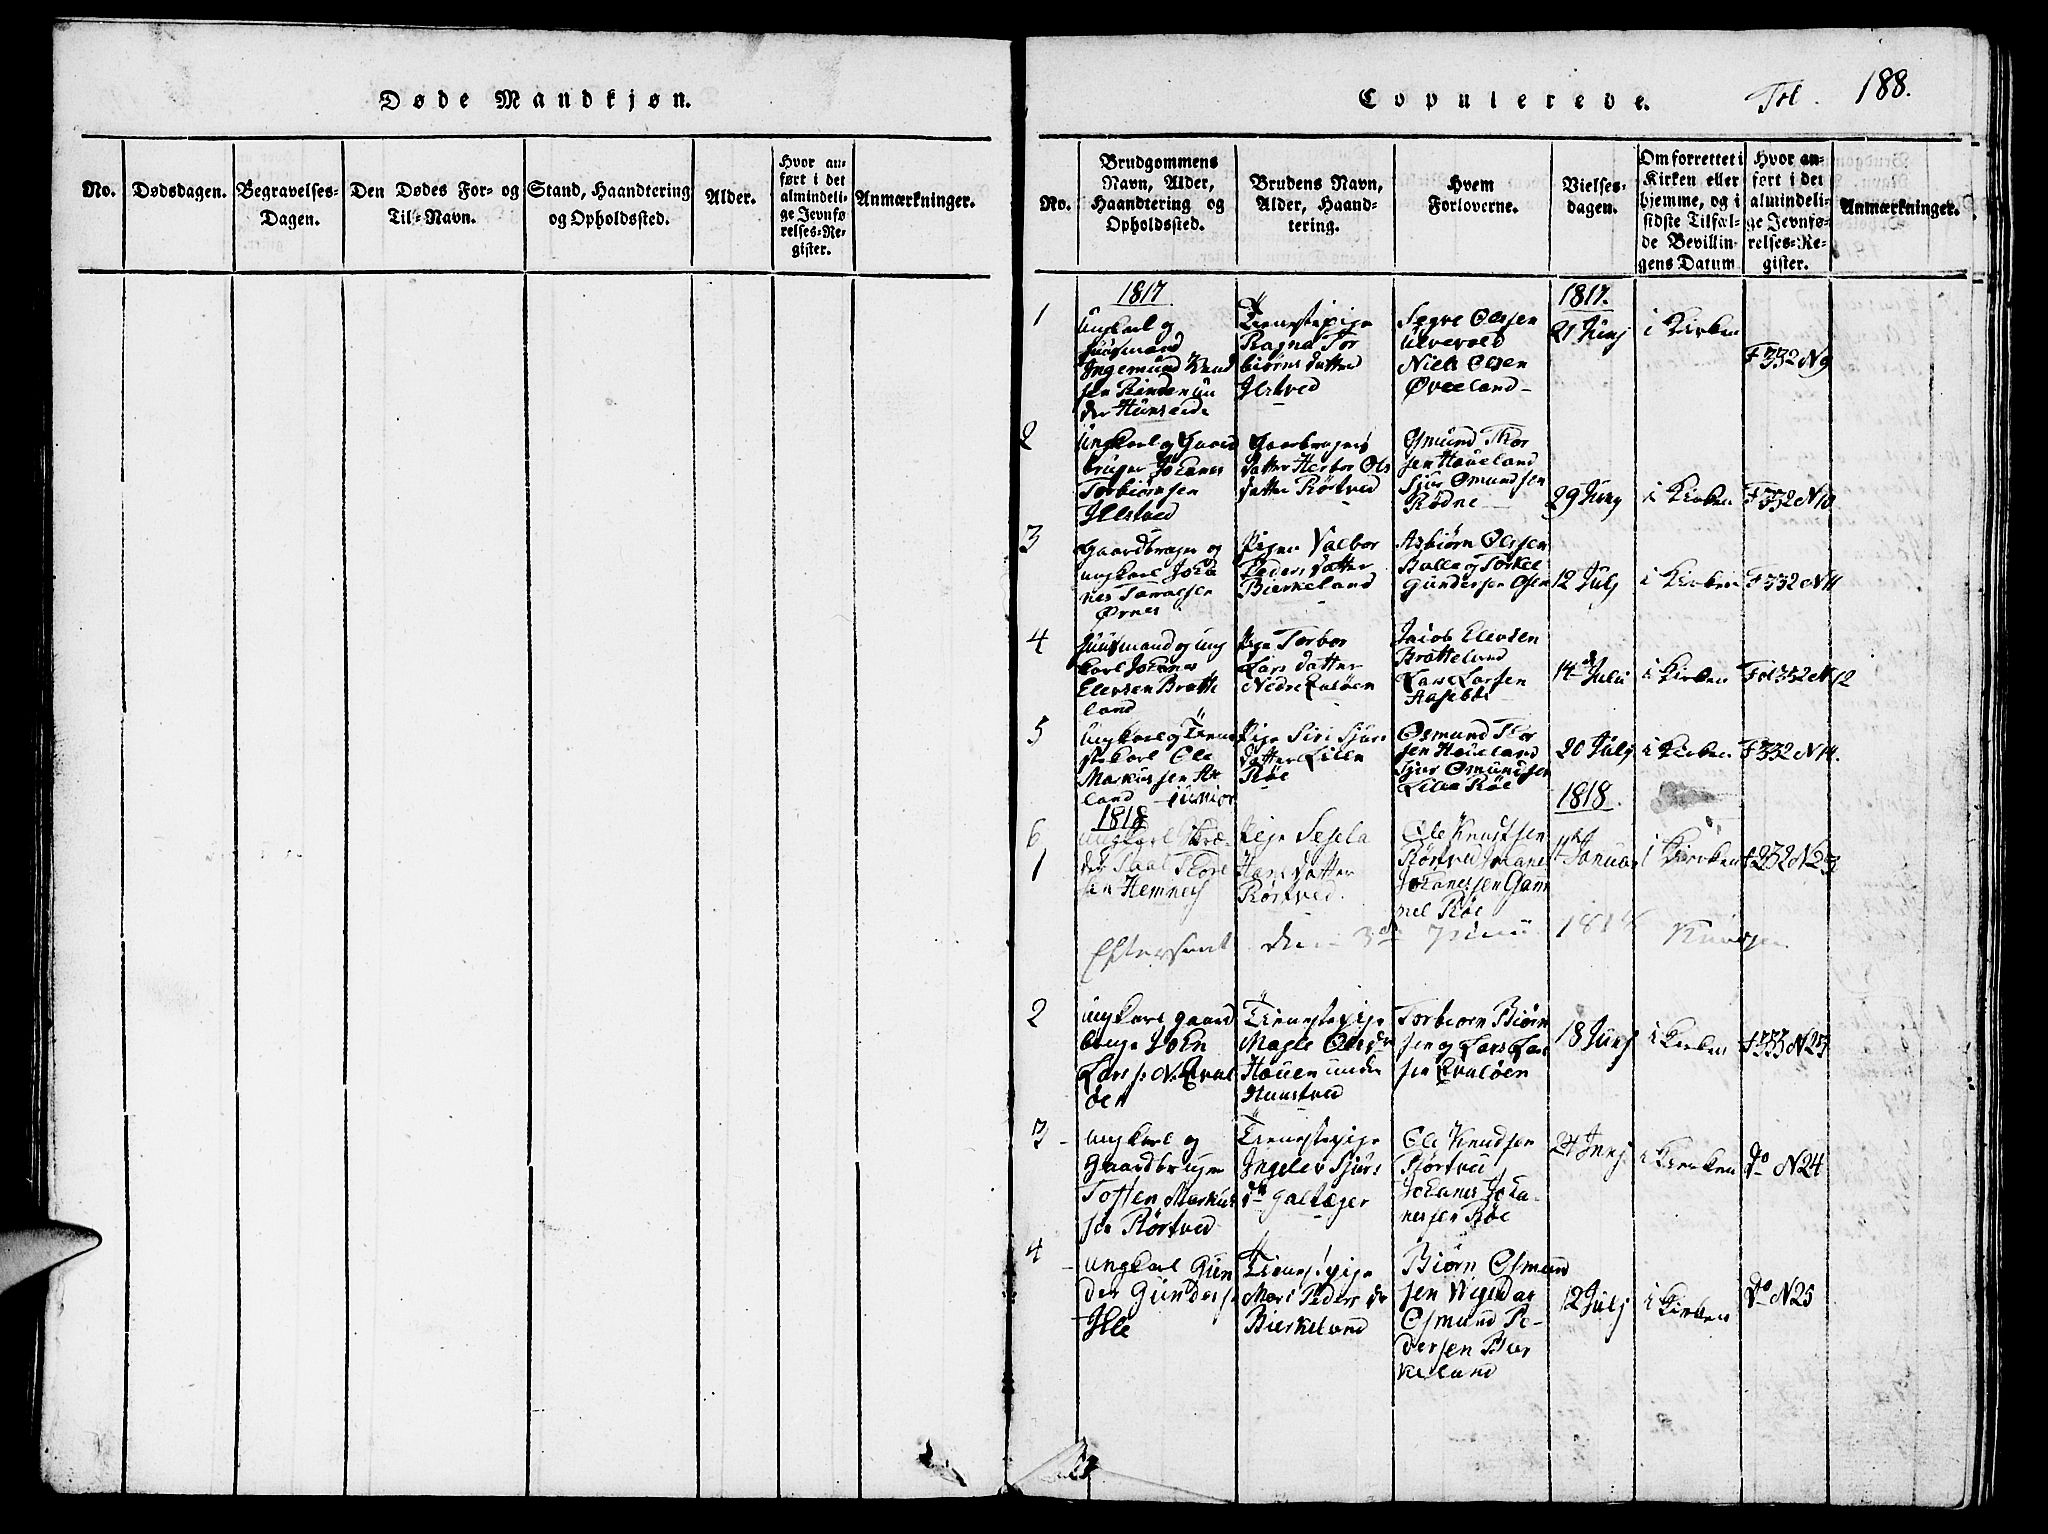 Døde Mandkjøn.
No.
Dødsdagen.
Begravelses-
Dagen.
Den Dødes For- og
Til-Navn.
Stand, Haandtering
og Opholdssted.
Alder.
Hvor an-
ført i det
almindeli-
ge Jevnfø
relses-Re-
gister.
Anmærkninger.
Copulerede.
Fol. 188.
No.
Brudgommens
Navn, Alder,
Haandtering og
Opholdssted.
Brudens Navn,
Alder, Haand-
tering.
Hvem
Forloverne.
Vielses-
dagen.
Om forrettet i
Kirken eller
hjemme, og i
sidste Tilfæl-
de Bevillin-
gens Datum
Hvor an-
ført i det
almindeli-
ge Jevnfø-
relses-Re-
gister.
Anmærkninger.
1817
1
Ungkarl og
Huusmand
Ingemund Knud
sen Rinden un
der Hunseide
Tienestepige
Ragna Tor
biørns datter
Ilstved
Segve Olssen
Ulvevold
Niels Olsen
Øveeland
1817.
21 Junj
i Kirken
F332 N9
2
Ungkarl og Gaard
bruger Johanes
Torbiørnsen
Ilstved
Gaarbrugers
datter Herbor Ols
datter Rørtved
Osmund Thor
sen Høueland
Sjur Osmundsen
Rødne
29 Juny
i Kirken
F332 N10
3
Gaardbruger og
ungkarl Joha
nes
Ørnes
Pigen Valbor
Peders datter
Bierkeland
Asbiørn Olssen
Balle og Torkel
Gundersen Osen
12 Julj
i Kirken
F332 N11
4
Huusmand og ung
karl Johanes
Elevsen Bratte
land
Pige Torbor
Lars datter
Nedre Evaløen
Jacob Elevsen
Bratteland
Lars Larsen
14 de Julii
i Kirken
Fol 332 N12
5
Ungkarl og Tiene
stekarl Ole
Markussen
land junior
Pige Siri Sjurs
datter Lille
Røe
Osmund Thor
sen Høieland
Sjur Osmundsen
Lille Røe
20 Julj
i Kirken
F332 N14.
1818
1818.
6
1
Ungkarl
Hemnes
Pige Sesela
Hans datter
Rørtved.
Ole Knutsen
Rørtved
Johanessen Gam
mel Røe
Januar
i Kirken
F232 N23
Efterseet den 3de 1818
2
ungkarl gaard
bruge John
Lars s. N. Eval
øen
Tienestepige
Magle Ols dr
Høuen under
Hunstved
Torbiorn Biørn
sen og Lars Lar
sen Evaløen
18 Junj
i Kirken
F333 N23
3
ungkarl og
Gaardbruger
Tosten Markus
sen Rørtved
Tienestepige
Ingelev Sjurs
dr Galtæger
Ole Knudsen
Rørtved
Johanes Joha-
nessen Røe
24 Junj
i Kirken
do N24
4
ungkarl Gun
der Gunders
Ille
Tienestpige
Mari Peders dr
Bierkeland
Biørn Osmund
sen Vigedar
Osmund Pe-
dersen Bier
keland
12 Julj
i Kirken
do N25